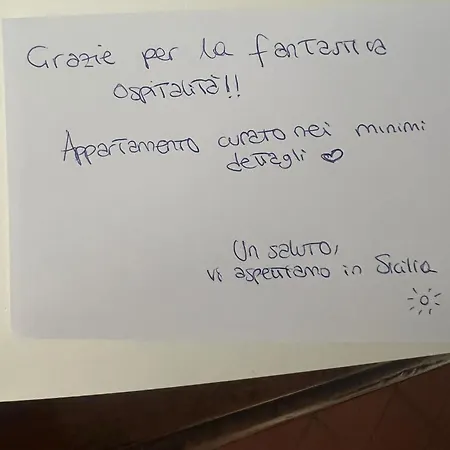 Grazie per la fantastica
ospitalità!!
Appartamento curato nei minimi
dettagli ♡
Un saluto,
vi aspettiamo in Sicilia